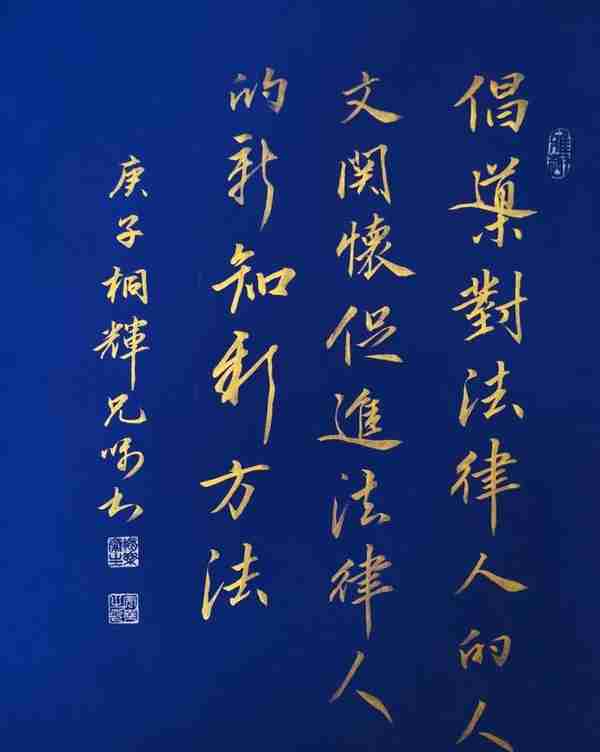 倡導對法律人的人
文関懷促進法律人
的新知新方法
庚子桐輝兄嘱书